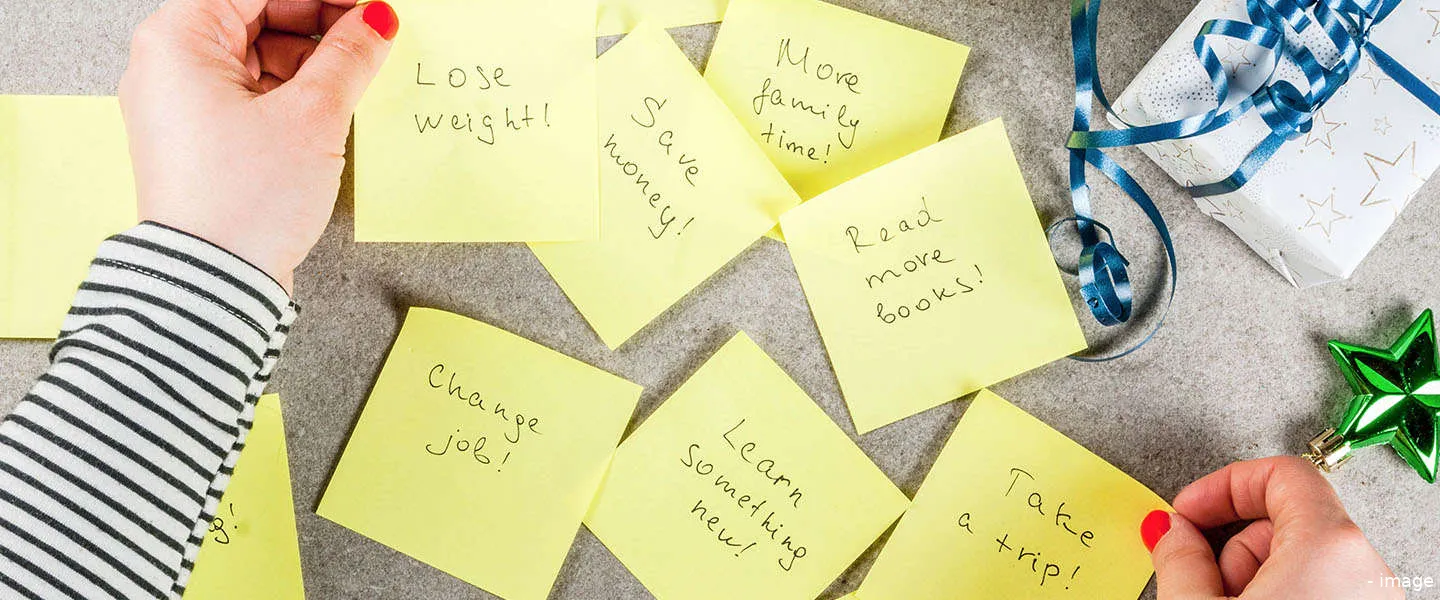 Lose
weight!
Save
money!
More
family
time!
Read
more
books!
Change
job!
Learn
something
new!
Take
a trip!
g!
- image